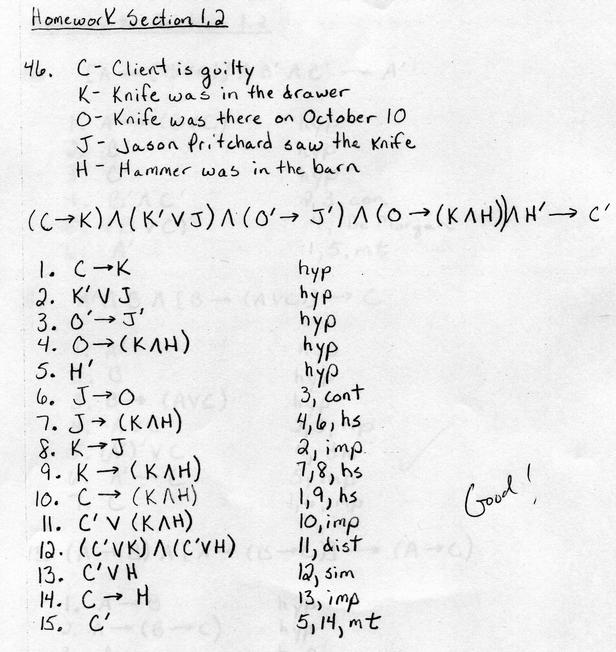 Homework Section 1.2
46. C- Client is guilty
K- Knife was in the drawer
O- Knife was there on October 10
J- Jason Pritchard saw the Knife
H- Hammer was in the barn
(C→K)Λ(K'VJ)Λ(O'→J')Λ(O→(KΛH))ΛH'→C'
1. C→K hyp
2. K'VJ hyp
3. O'→J' hyp
4. O→(KΛH) hyp
5. H' hyp
6. J→O 3, cont
7. J→(KΛH) 4,6, hs
8. K→J 2, imp.
9. K→(KΛH) 7,8, hs
10. C→(KΛH) 1,9, hs
11. C'V(KΛH) 10, imp
12. (C'VK)Λ(C'VH) 11, dist
13. C'VH 12, sim
14. C→H 13, imp
15. C' 5,14, mt
Good!